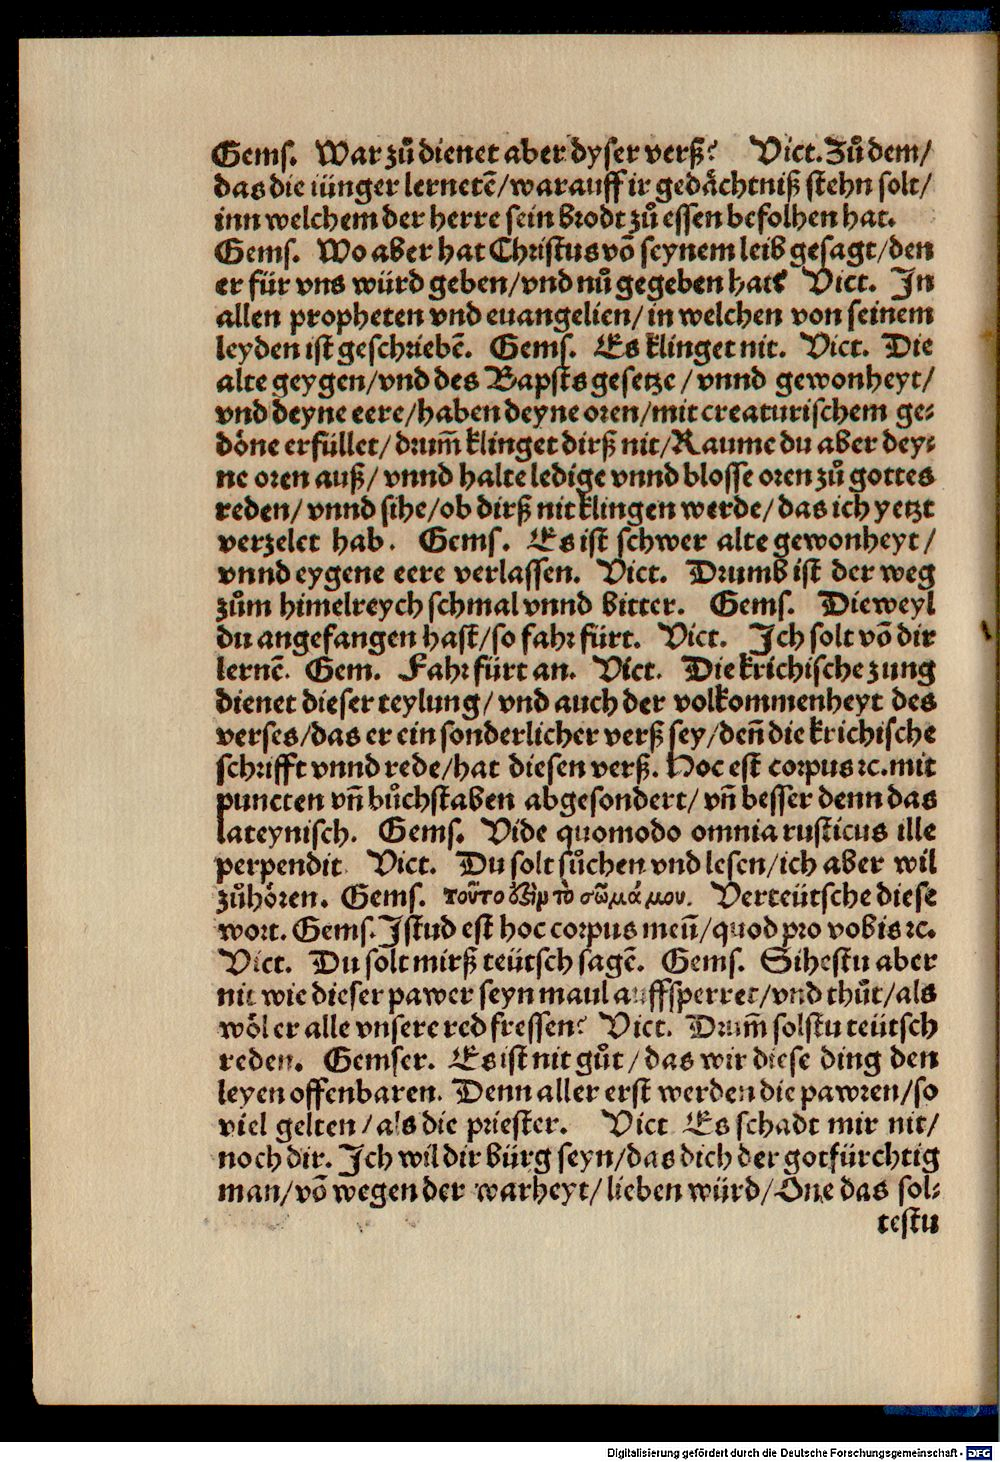 Gems. War zů dienet aber dyser verß? Vict. Zů dem/
das die iünger lernetē/ warauff ir gedächtniß stehn solt/
inn welchem der herre sein brodt zů essen befolhen hat.
Gems. Wo aber hat Christus vō seynem leib gesagt/ den
er für vns würd geben/ vnd nů gegeben hat? Vict. In
allen propheten vnd euangelien/ in welchen von seinem
leyden ist geschriebē. Gems. Es klinget nit. Vict. Die
alte geygen/ vnd des Bapsts gesetze/ vnnd gewonheyt/
vnd deyne eere/ haben deyne oren/ mit creaturischem ge⸗
döne erfüllet/ drum̄ klinget dirß nit/ Raume du aber dey⸗
ne oren auß/ vnnd halte ledige vnnd blosse oren zů gottes
reden/ vnnd sihe/ ob dirß nit klingen werde/ das ich yetzt
verzelet hab. Gems. Es ist schwer alte gewonheyt/
vnnd eygene eere verlassen. Vict. Drumb ist der weg
zům himelreych schmal vnnd bitter. Gems. Dieweyl
du angefangen hast/ so fahr fürt. Vict. Ich solt vō dir
lernē. Gem. Fahr fürt an. Vict. Die krichische zung
dienet dieser teylung/ vnd auch der volkommenheyt des
verses/ das er ein sonderlicher verß sey/ den̄ die krichische
schrifft vnnd rede/ hat diesen verß. Hoc est corpus ꝛc. mit
puncten vn̄ bůchstaben abgesondert/ vn̄ besser denn das
lateynisch. Gems. Vide quomodo omnia rusticus ille
perpendit Vict. Du solt sůchen vnd lesen/ ich aber wil
zůhören. Gems. τοῦτο ἐστὶν τὸ σῶμά μου. Verteütsche diese
wort. Gems. Istud est hoc corpus meū/ quod pro vobis ꝛc.
Vict. Du solt mirß teütsch sagē. Gems. Sihestu aber
nit wie dieser pawer seyn maul auffsperret/ vnd thůt/ als
wöl er alle vnsere red fressen? Vict. Drum̄ solstu teütsch
reden. Gemser. Es ist nit gůt/ das wir diese ding den
leyen offenbaren. Denn aller erst werden die pawren/ so
viel gelten/ als die priester. Vict Es schadt mir nit/
noch dir. Ich wil dir bürg seyn/ das dich der gotfürchtig
man/ vō wegen der warheyt/ lieben würd/ One das sol⸗
testu
Digitalisierung gefördert durch die Deutsche Forschungsgemeinschaft - DFG